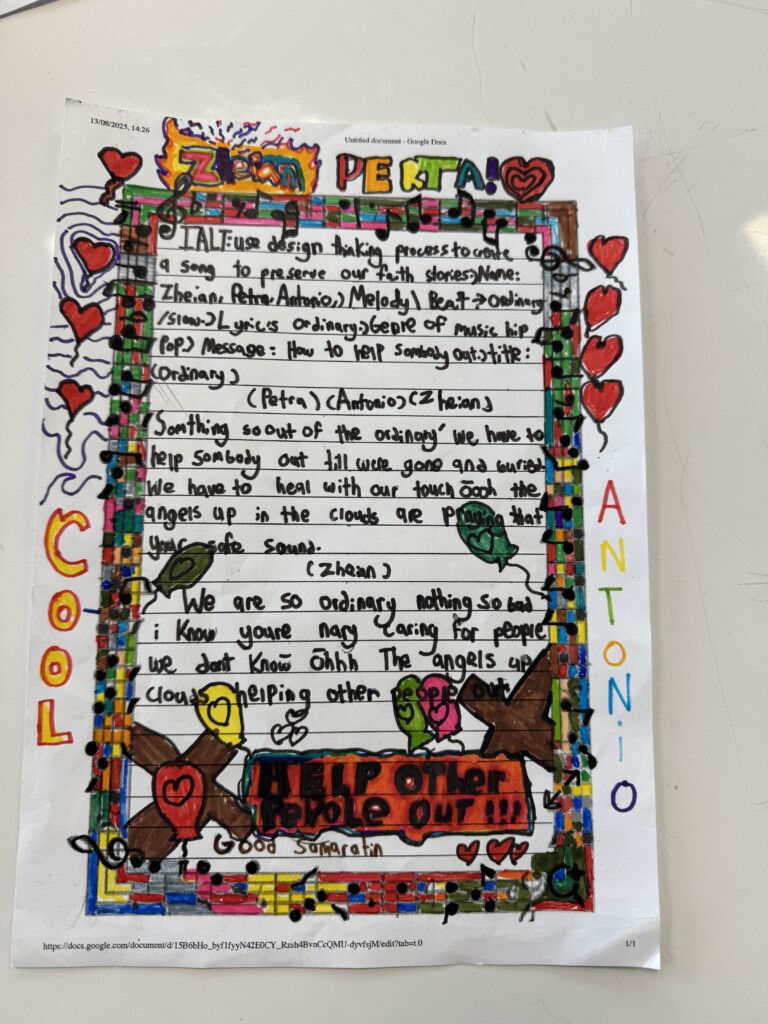 13/08/2025, 14:26
Untitled document - Google Docs
Zheian PERTA!
IALT: use design thinking process to create
a song to preserve our faith stories:)Name:
Zheian, Petra, Antonio,) Melody\ Beat → ordinary
/slow.) Lyrics ordinary.) Genre of music hip
Pop.) Message: How to help sombady out.) title:
(Ordinary.)
(Petra) (Antonio) (Zheian)
Somthing so out of the ordinary' we have to
help sombody out till were gone and buried
We have to heal with our touch ōooh the
angels up in the clouds are praying that
your safe sound.
(Zheian)
We are so ordinary nothing so bad
i Know youre nary caring for people
we dont Know ōhhh The angels up
clouds helping other people out
HELP OTHer
PePOLe OUT!!!
Good Samaratin
COOL
ANTONiO
https://docs.google.com/document/d/15B6bHo_byf1fyyN42E0CY_Rzsh4BvnCcQMU-dyvfsjM/edit?tab=t.0
1/1